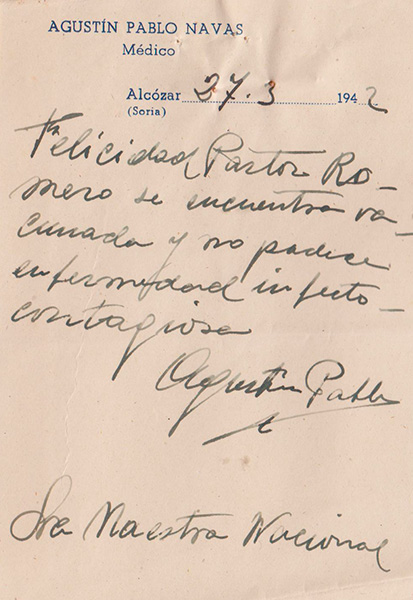 AGUSTÍN PABLO NAVAS
Médico
Alcózar 27.3 1942
(Soria)
Felicidad Pastor Ro-
mero se encuentra va-
cunada y no padece
enfermedad infecto-
contagiosa
Agustin Pablo
Sra Maestra Nacional